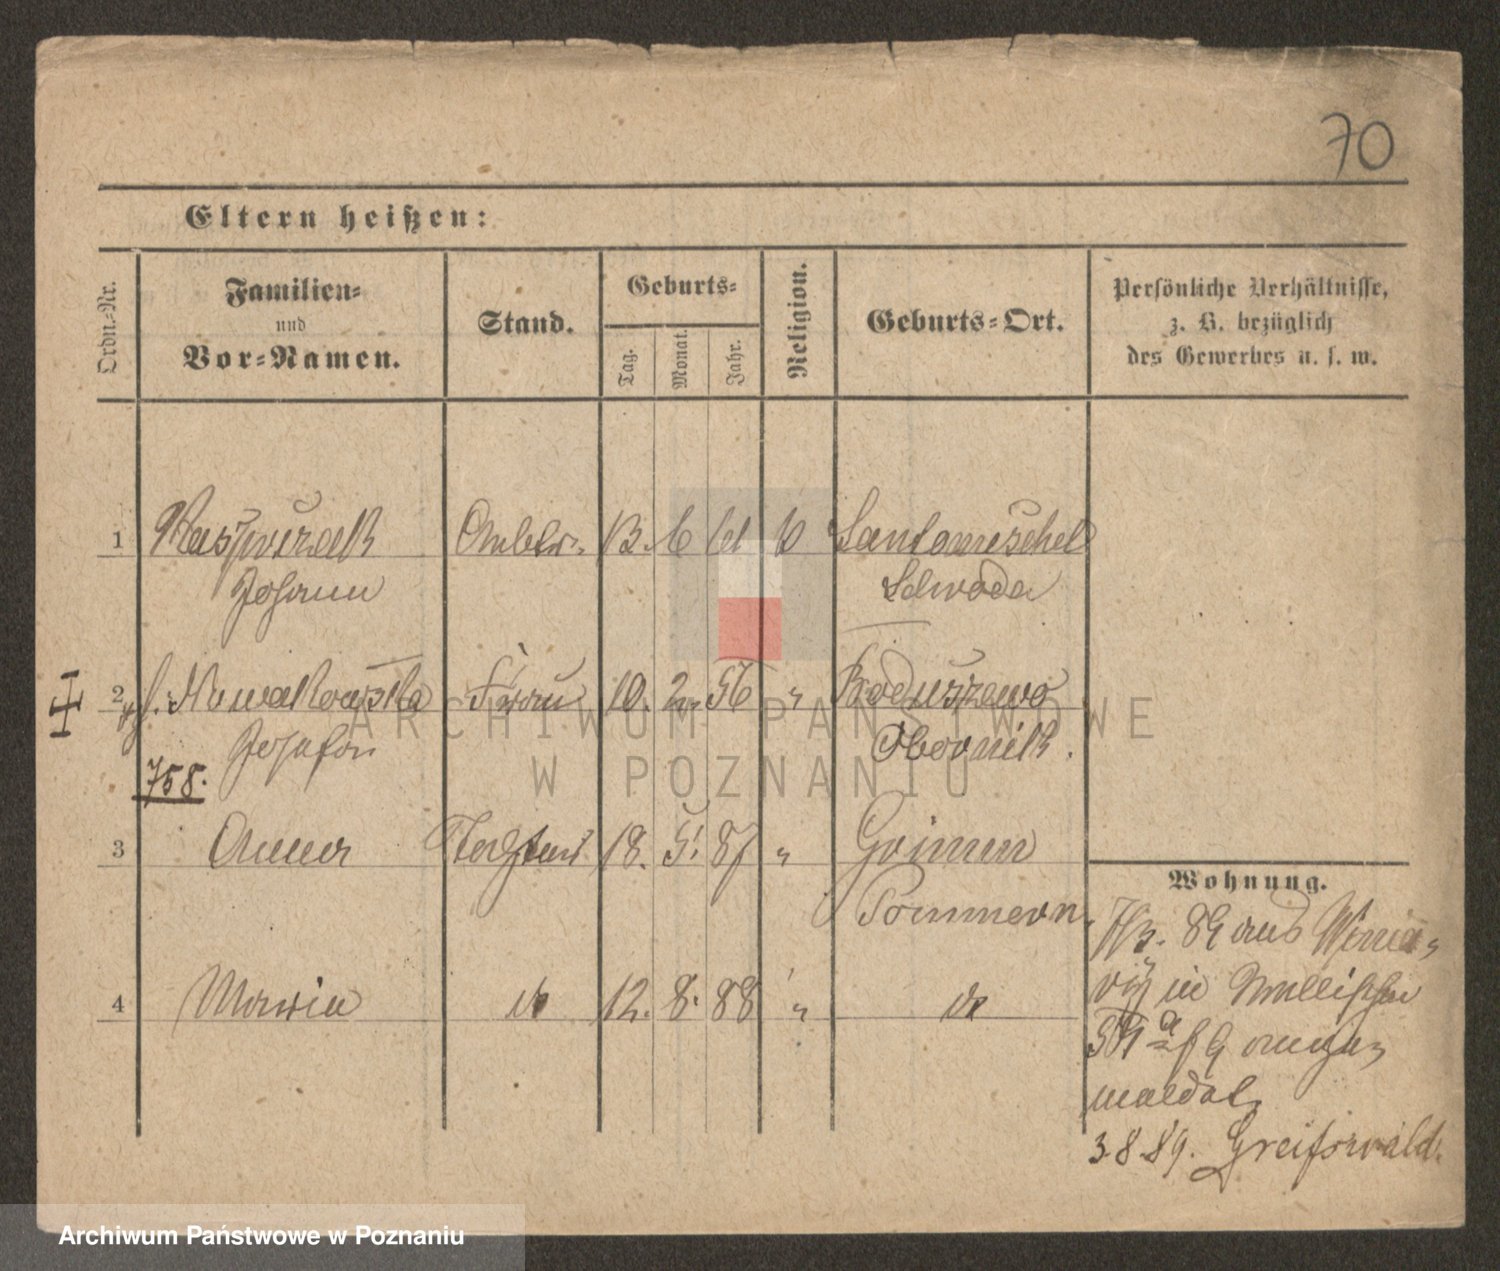 70
Eltern heißen:
Ordn.-Nr.
Familien-
und
Vor-Namen.
Stand.
Geburts-
Tag.
Monat.
Jahr.
Religion.
Geburts-Ort.
Persönliche Verhältnisse,
z. B. bezüglich
des Gewerbes u. s. w.
1 Kaspurzak 13. 6 61 Santomischel
Johann
2 Nowakowska Frau 10. 2. 56 " Boduszewo
Josefa Obornik.
758.
3 Anna Tochter 18. 5. 87 " Grimmen
Pommern
4 Maria do 12. 8. 88 " do
Wohnung.
89 aus
in
maldet
3.8.89. Greifswald.
ARCHIWUM PAŃSTWOWE
W POZNANIU
Archiwum Państwowe w Poznaniu